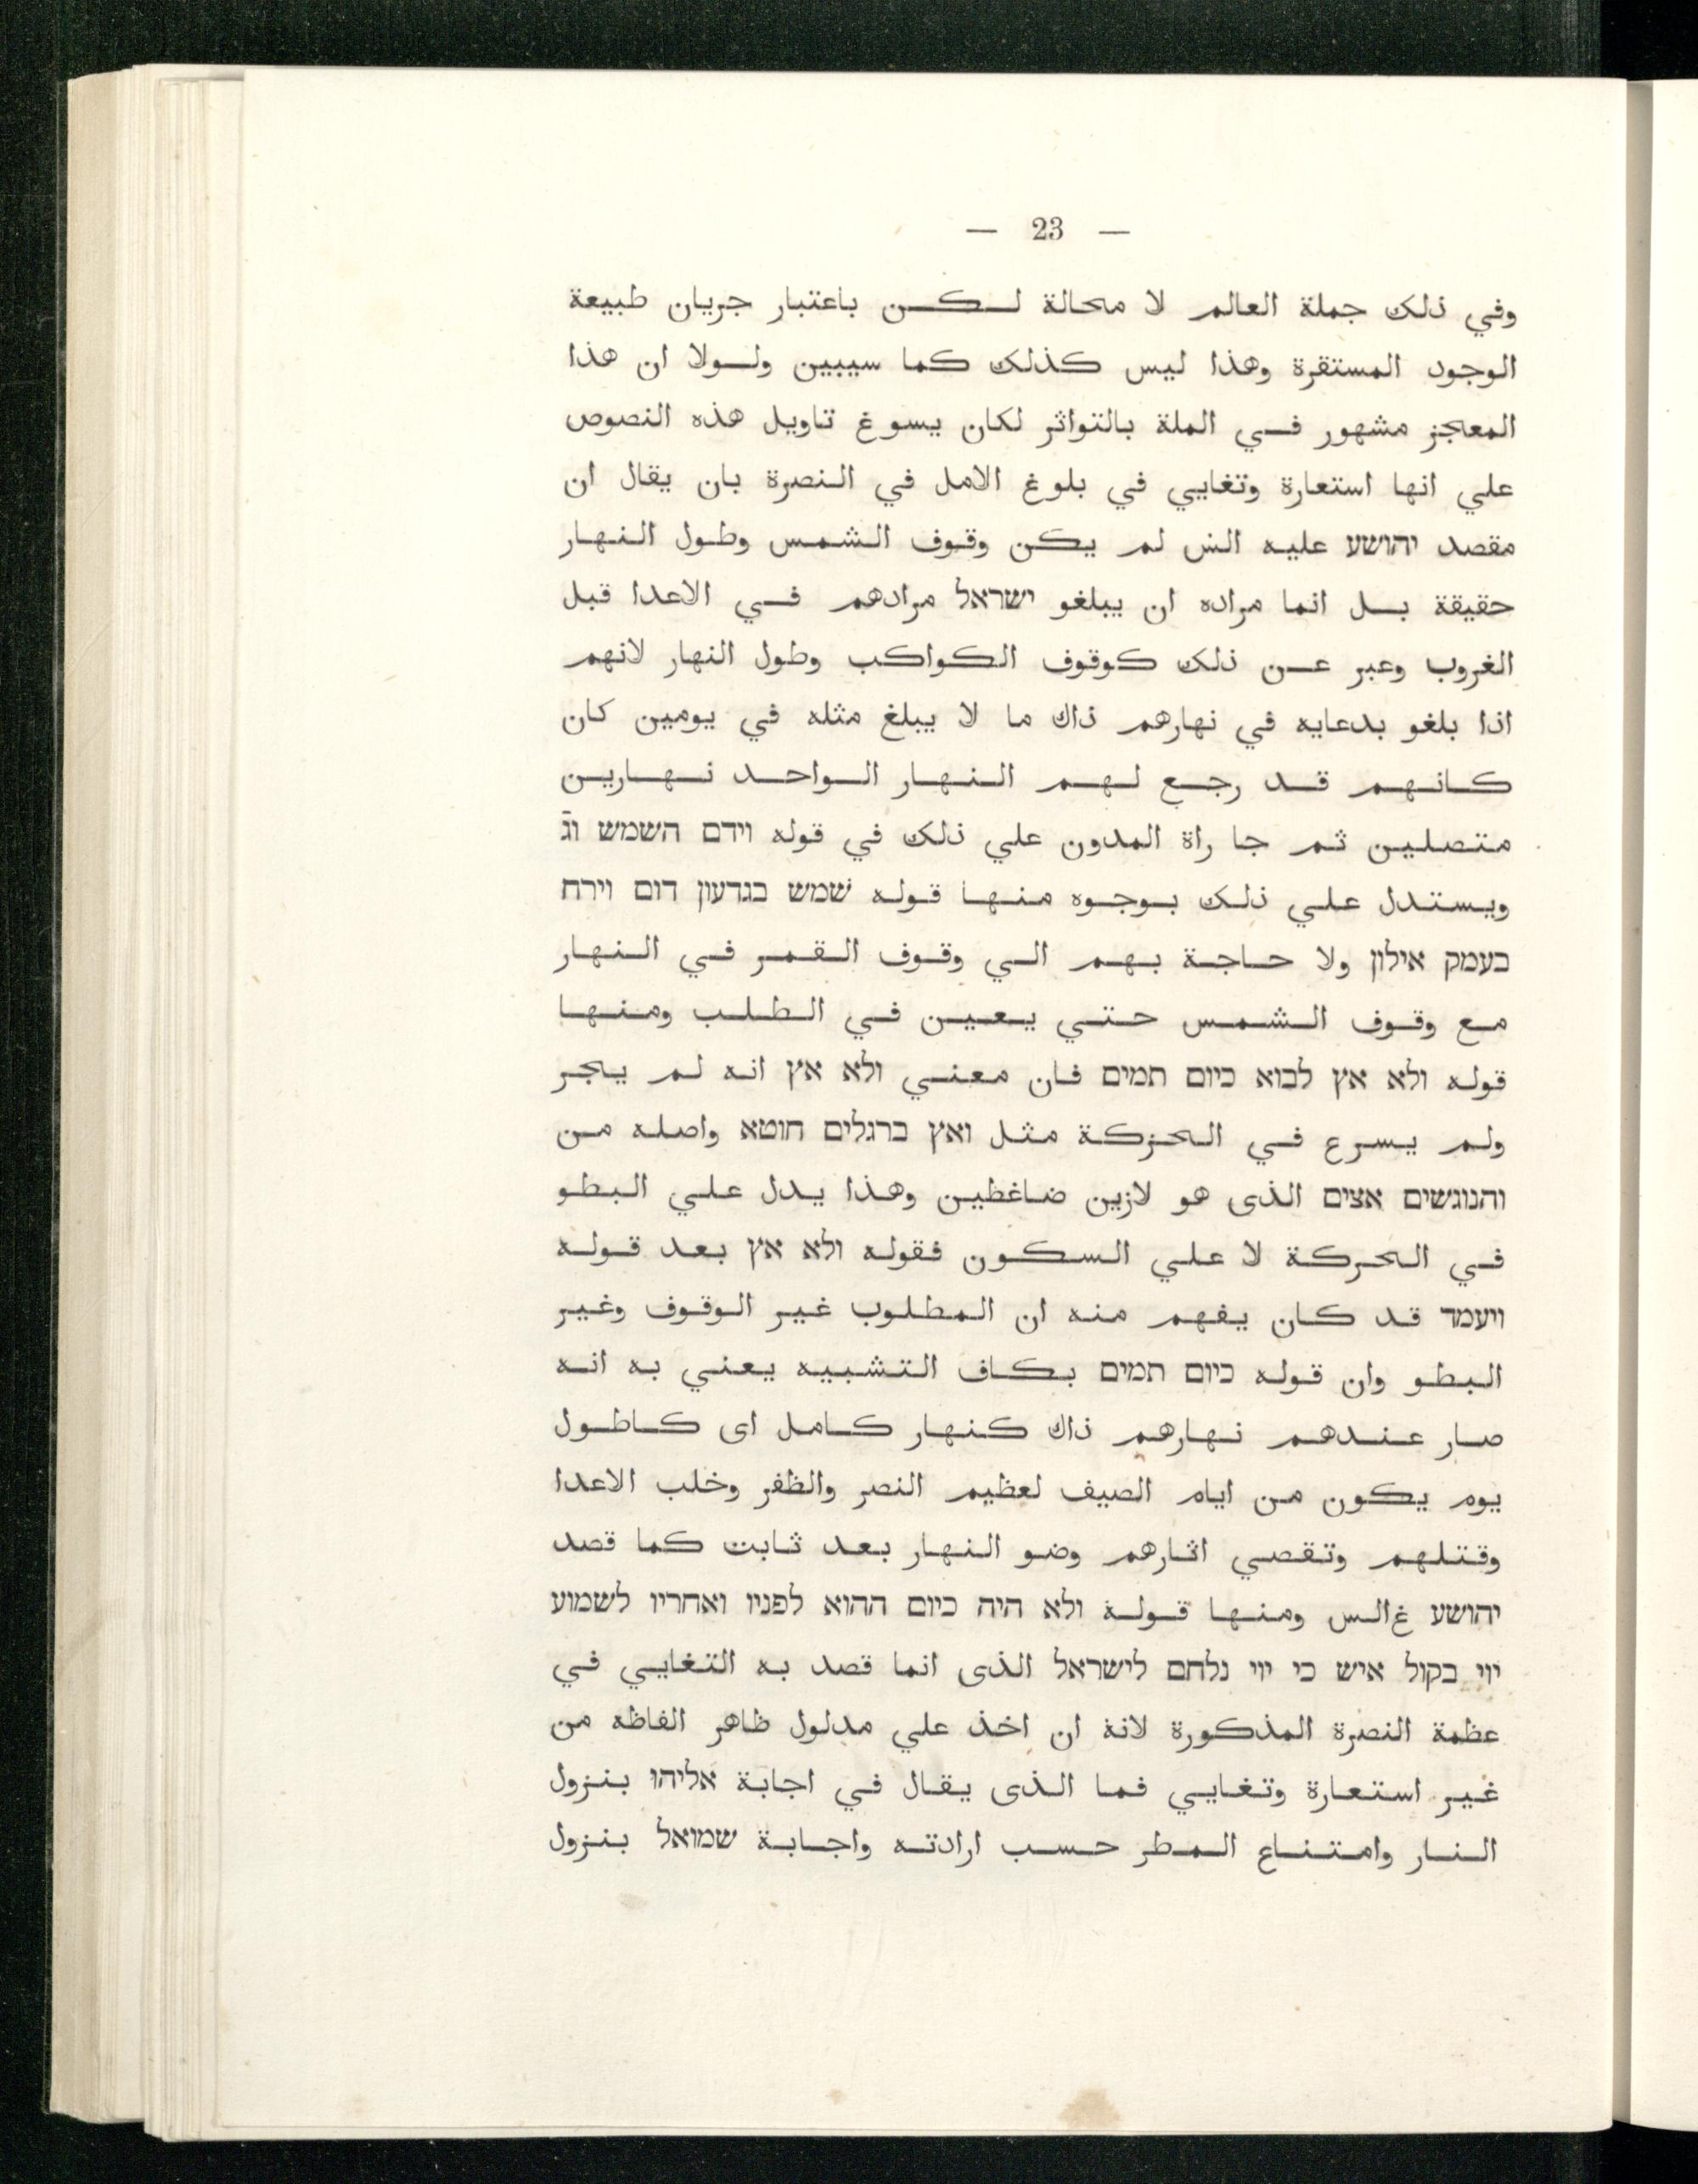 — 23 —
وفي ذلك جملة العالم لا محالة لكن باعتبار جريان طبيعة
الوجود المستقرة وهذا ليس كذلك كما سيبين ولولا ان هذا
المعجز مشهور في الملة بالتواثر لكان يسوغ تاويل هذه النصوص
علي انها استعارة وتغايي في بلوغ الامل في النصرة بان يقال ان
مقصد יהושע عليه الس لم يكن وقوف الشمس وطول النهار
حقيقة بل انما مراده ان يبلغو ישראל مرادهم في الاعدا قبل
الغروب وعبر عن ذلك كوقوف الكواكب وطول النهار لانهم
اذا بلغو بدعايه في نهارهم ذاك ما لا يبلغ مثله في يومين كان
كانهم قد رجع لهم النهار الواحد نهارين
متصلين ثم جا راة المدون علي ذلك في قوله וידם השמש וג̄
ويستدل علي ذلك بوجوه منها قوله שמש בגדעון דום וירח
בעמק אילון ولا حاجة بهم الي وقوف القمر في النهار
مع وقوف الشمس حتي يعين في الطلب ومنها
قوله ולא אץ לבוא כיום תמים فان معني ולא אץ انه لم يجر
ولم يسرع في الحزكة مثل ואץ ברגלים חוטא واصله من
והנוגשים אצים الذى هو لازين ضاغطين وهذا يدل علي البطو
في الحركة لا علي السكون فقوله ולא אץ بعد قوله
ויעמד قد كان يفهم منه ان المطلوب غير الوقوف وغير
البطو وان قوله כיום תמים بكاف التشبيه يعني به انه
صار عندهم نهارهم ذاك كنهار كامل اى كاطول
يوم يكون من ايام الصيف لعظيم النصر والظفر وخلب الاعدا
وقتلهم وتقصي اثارهم وضو النهار بعد ثابت كما قصد
יהושע غ‌الس ومنها قولة ולא היה כיום ההוא לפניו ואחריו לשמוע
יוי בקול איש כי יוי נלחם לישראל الذى انما قصد به التغايي في
عظمة النصرة المذكورة لانة ان اخذ علي مدلول ظاهر الفاظه من
غير استعارة وتغايي فما الذى يقال في اجابة אליהו بنزول
النار وامتناع المطر حسب ارادته واجابة שמואל بنزول